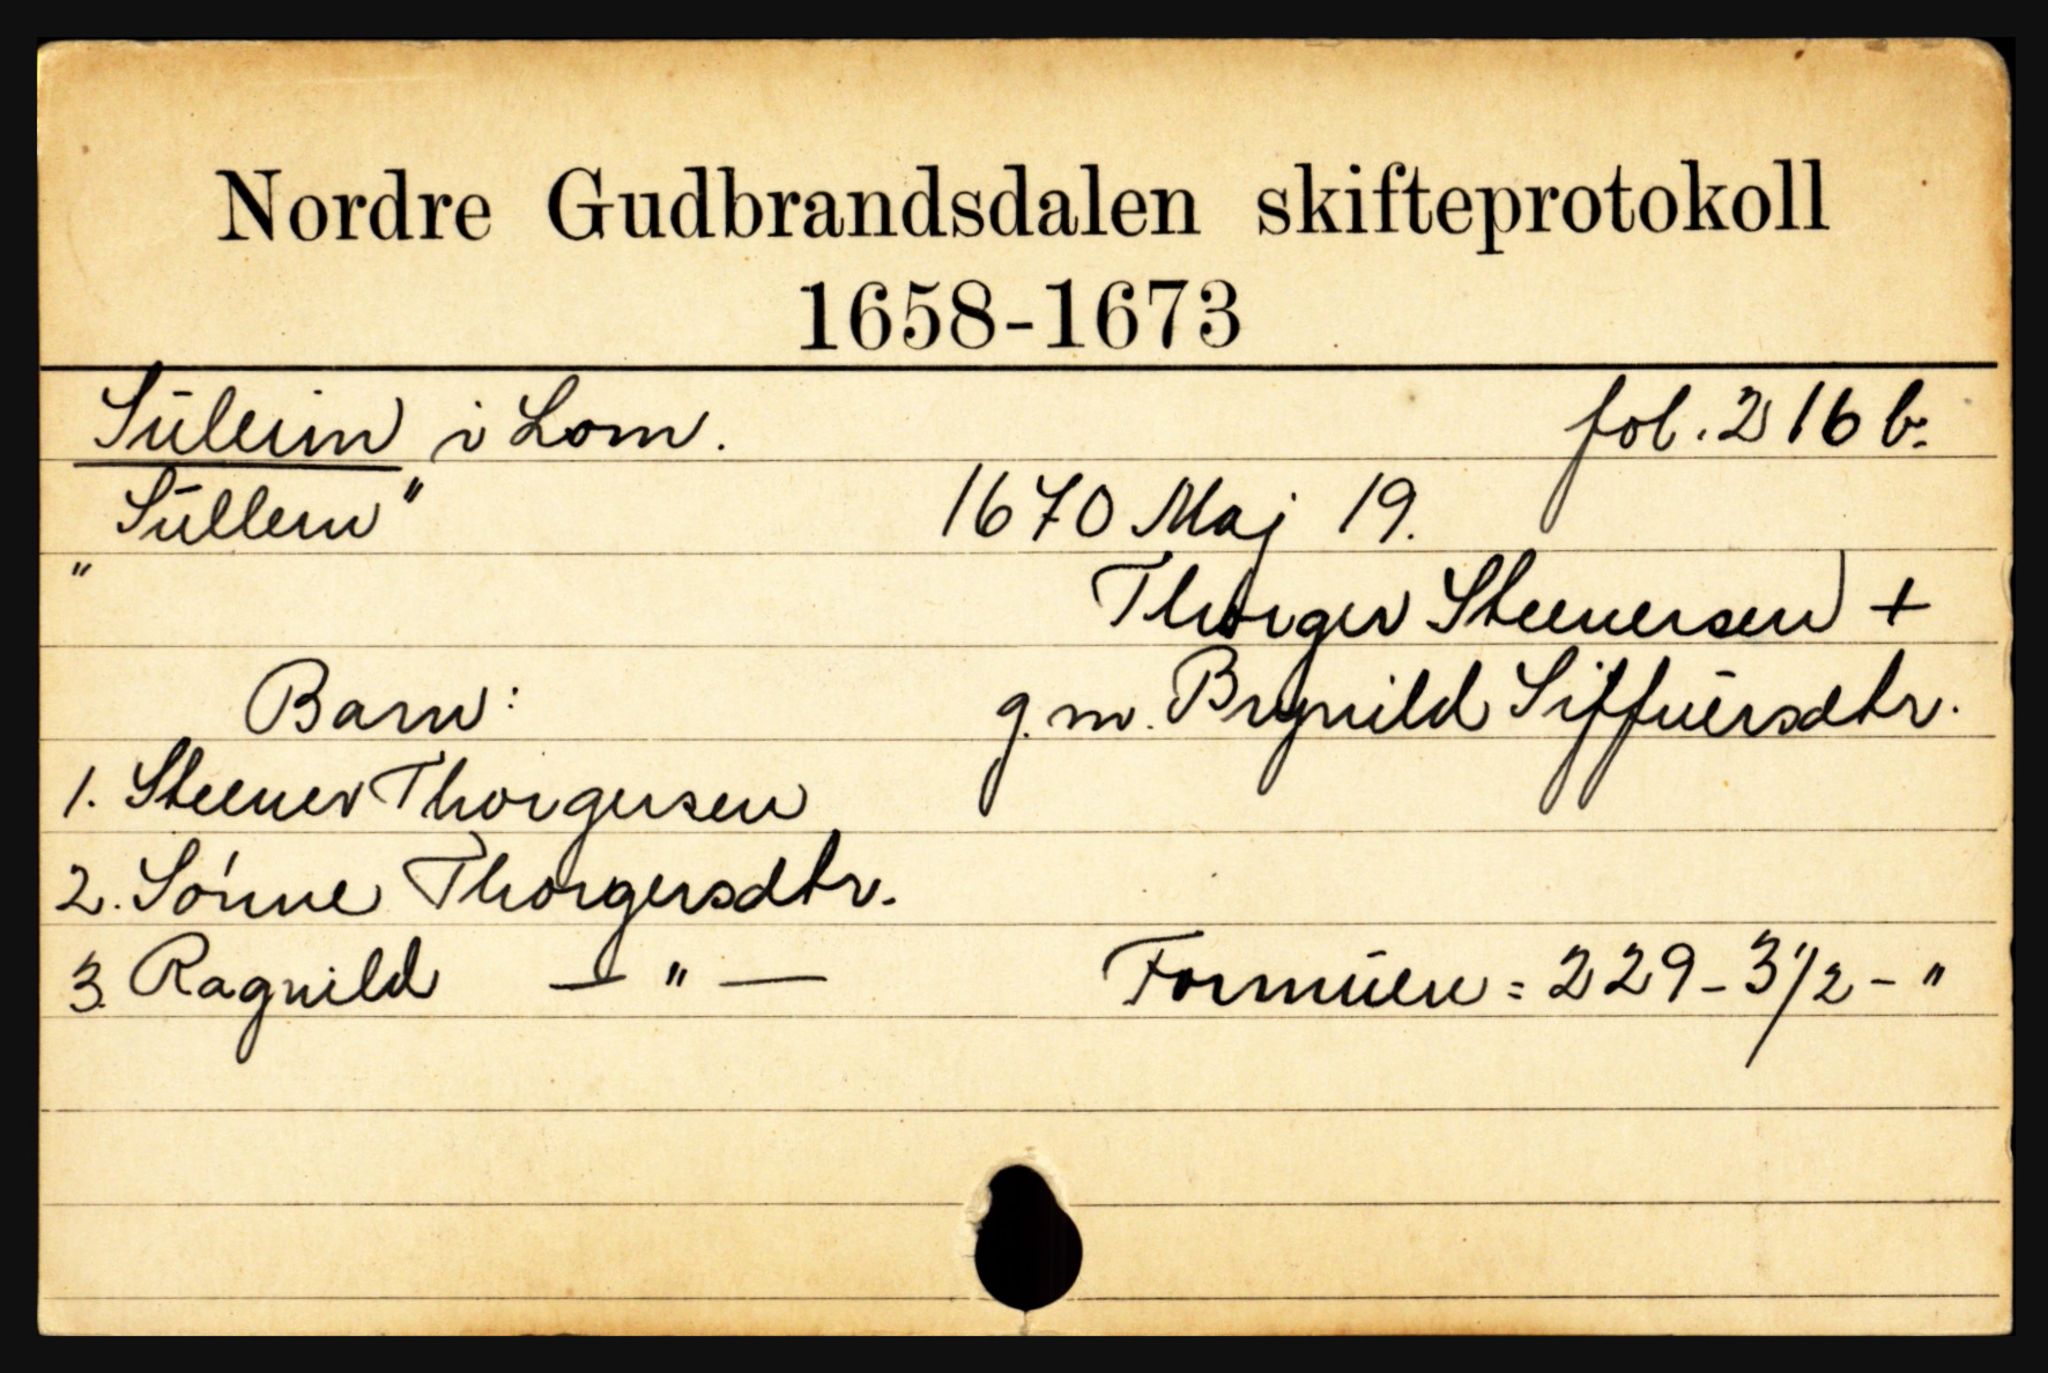 Nordre Gudbrandsdalen skifteprotokoll
1658-1673
Suleim i Lom. fol. 216 b.
"Sullem" 1670 Maj 19.
Thorger Steenersen +
Barn: g.m. Brynild Siffuersdtr.
1. Steener Thorgersen
2. Sónne Thorgersdtr.
3. Ragnild — " — Formuen = 229 - 3 1/2 - "